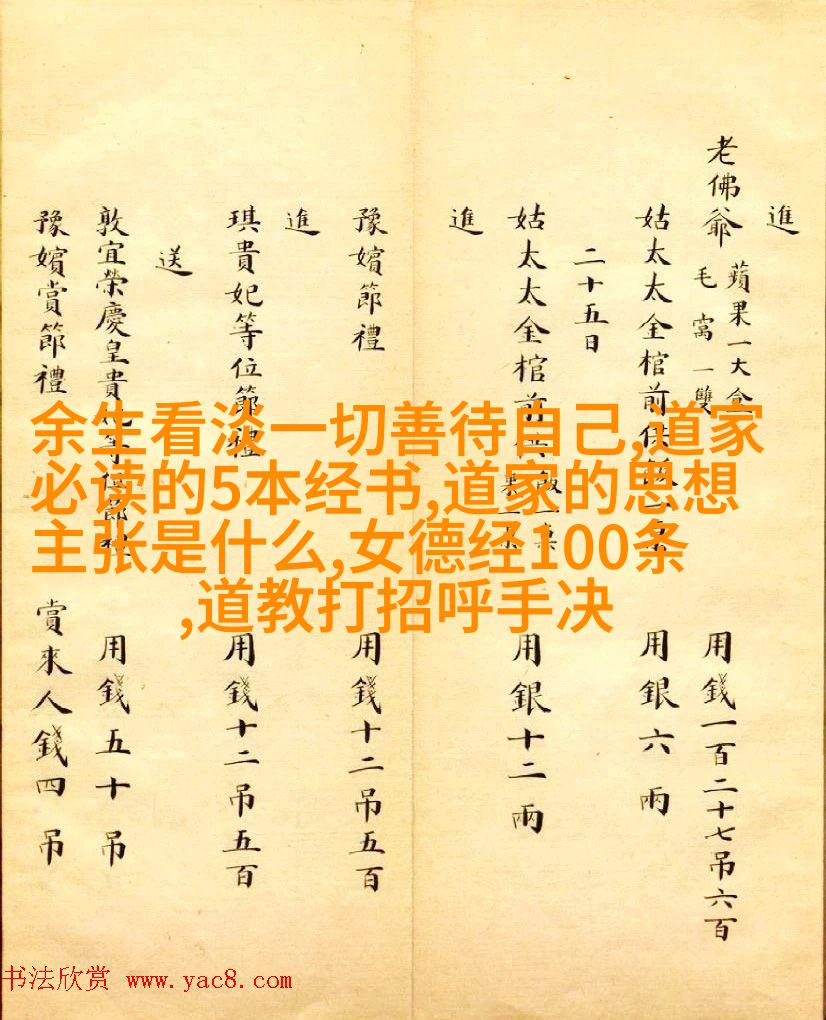 進
老佛爺 蘋果一大盒 毛窩一雙 用錢一百二十七吊六百
姑太太金棺前 用銀六兩
二十五日
姑太太金棺前 用銀十二兩
進
豫嬪節禮 用錢十二吊五百
進
琪貴妃等位節禮 用錢十二吊五百
送
敦宜榮慶皇貴妃等位節禮 用錢五十吊
豫嬪賞節禮 賞來人錢四吊
余生看淡一切善待自己,道家
必读的5本经书,道家的思想
主张是什么,女德经100条
,道教打招呼手决
书法欣赏 www.yac8.com